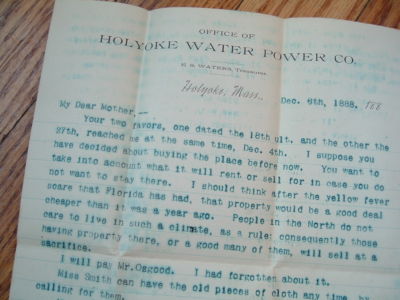 OFFICE OF
HOLYOKE WATER POWER CO.
E. S. WATERS, Treasurer.
Holyoke, Mass., Dec. 6th, 1888. 188
My Dear Mother,—
Your two favors, one dated the 18th ult. and the other the
27th, reached me at the same time, Dec. 4th. I suppose you
have decided about buying the place before now. You want to
take into account what it will rent or sell for in case you do
not want to stay there. I should think after the yellow fever
scare that Florida has had, that property would be a good deal
cheaper than it was a year ago. People in the North do not
care to live in such a climate, as a rule; consequently those
having property there, or a good many of them, will sell at a
sacrifice.
I will pay Mr. Osgood. I had forgotten about it.
Miss Smith can have the old pieces of cloth any time, by
calling for them.